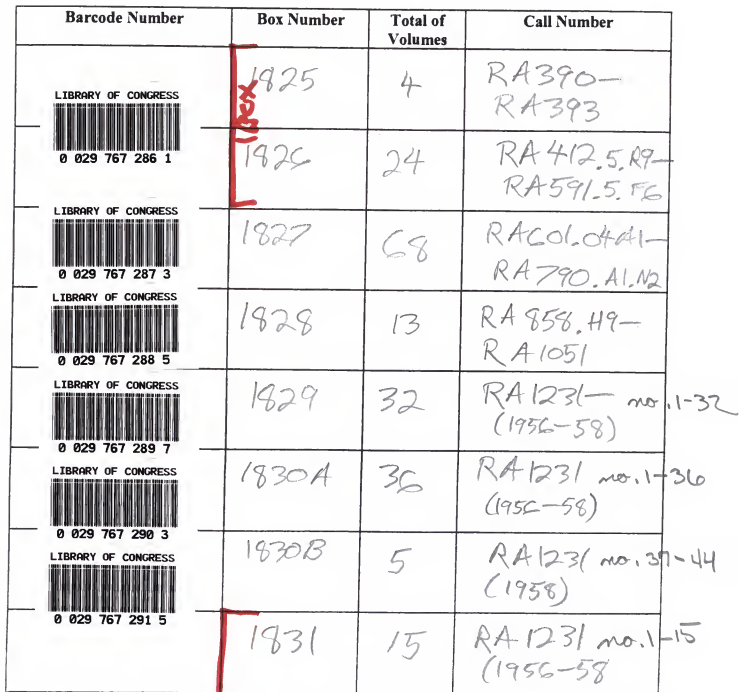 Barcode Number Box Number Total of Call Number
Volumes
LIBRARY OF CONGRESS
0 029 767 286 1
1825 4 RA390—
RA393
1826 24 RA412.5.R9—
RA591.5.F6
LIBRARY OF CONGRESS
0 029 767 287 3
1827 68 RA601.04A1—
RA790.A1.N2
LIBRARY OF CONGRESS
0 029 767 288 5
1828 13 RA858.H9—
RA1051
LIBRARY OF CONGRESS
0 029 767 289 7
1829 32 RA1231— no.1-32
(1956-58)
LIBRARY OF CONGRESS
0 029 767 290 3
1830A 36 RA1231 no.1-36
(1956-58)
LIBRARY OF CONGRESS
0 029 767 291 5
1830B 5 RA1231 no.37-44
(1958)
1831 15 RA1231 no.1-15
(1956-58